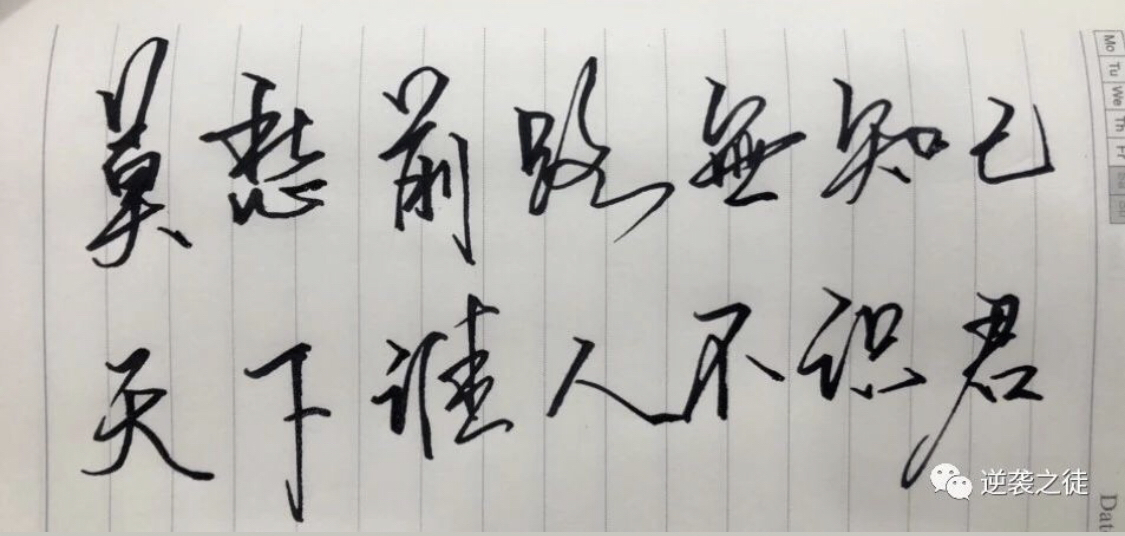 Mo
Tu
We
Th
Fr
Sa
Su
莫愁前路無知己
天下谁人不识君
Dat
逆袭之徒